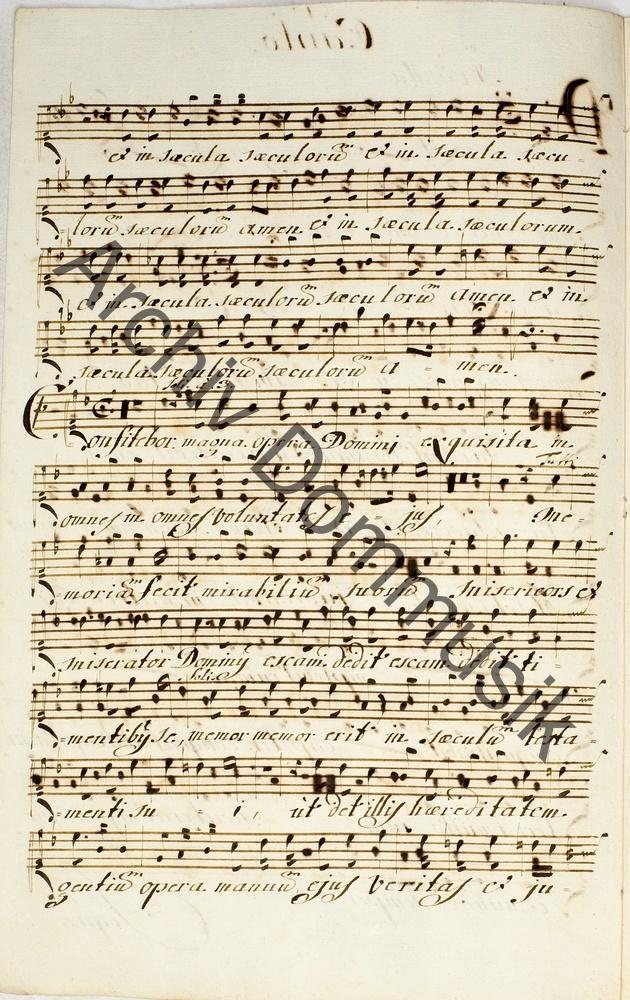 et in sæcula sæculorum̃ et in sæcula sæcu-
-lorum̃ sæculorum̃ amen. et in sæcula sæculorum.
et in sæcula sæculorum̃ sæculorum̃ amen. et in
sæcula sæculorum̃ sæculorum̃ a - men.
Confitebor magna opera Domini exquisita in
Tutti
omnes in omnes voluntates e - jus, Me-
-moriam̃ fecit mirabilium̃ suorum̃ misericors et
miserator Dominus escam dedit escam dedit ti-
Solo
-mentibus se, memor memor erit in sæculum̃ testa-
-menti su - i, ut det illis hæreditatem.
gentium̃ opera manuum̃ ejus veritas et ju-
Archiv Dommusik